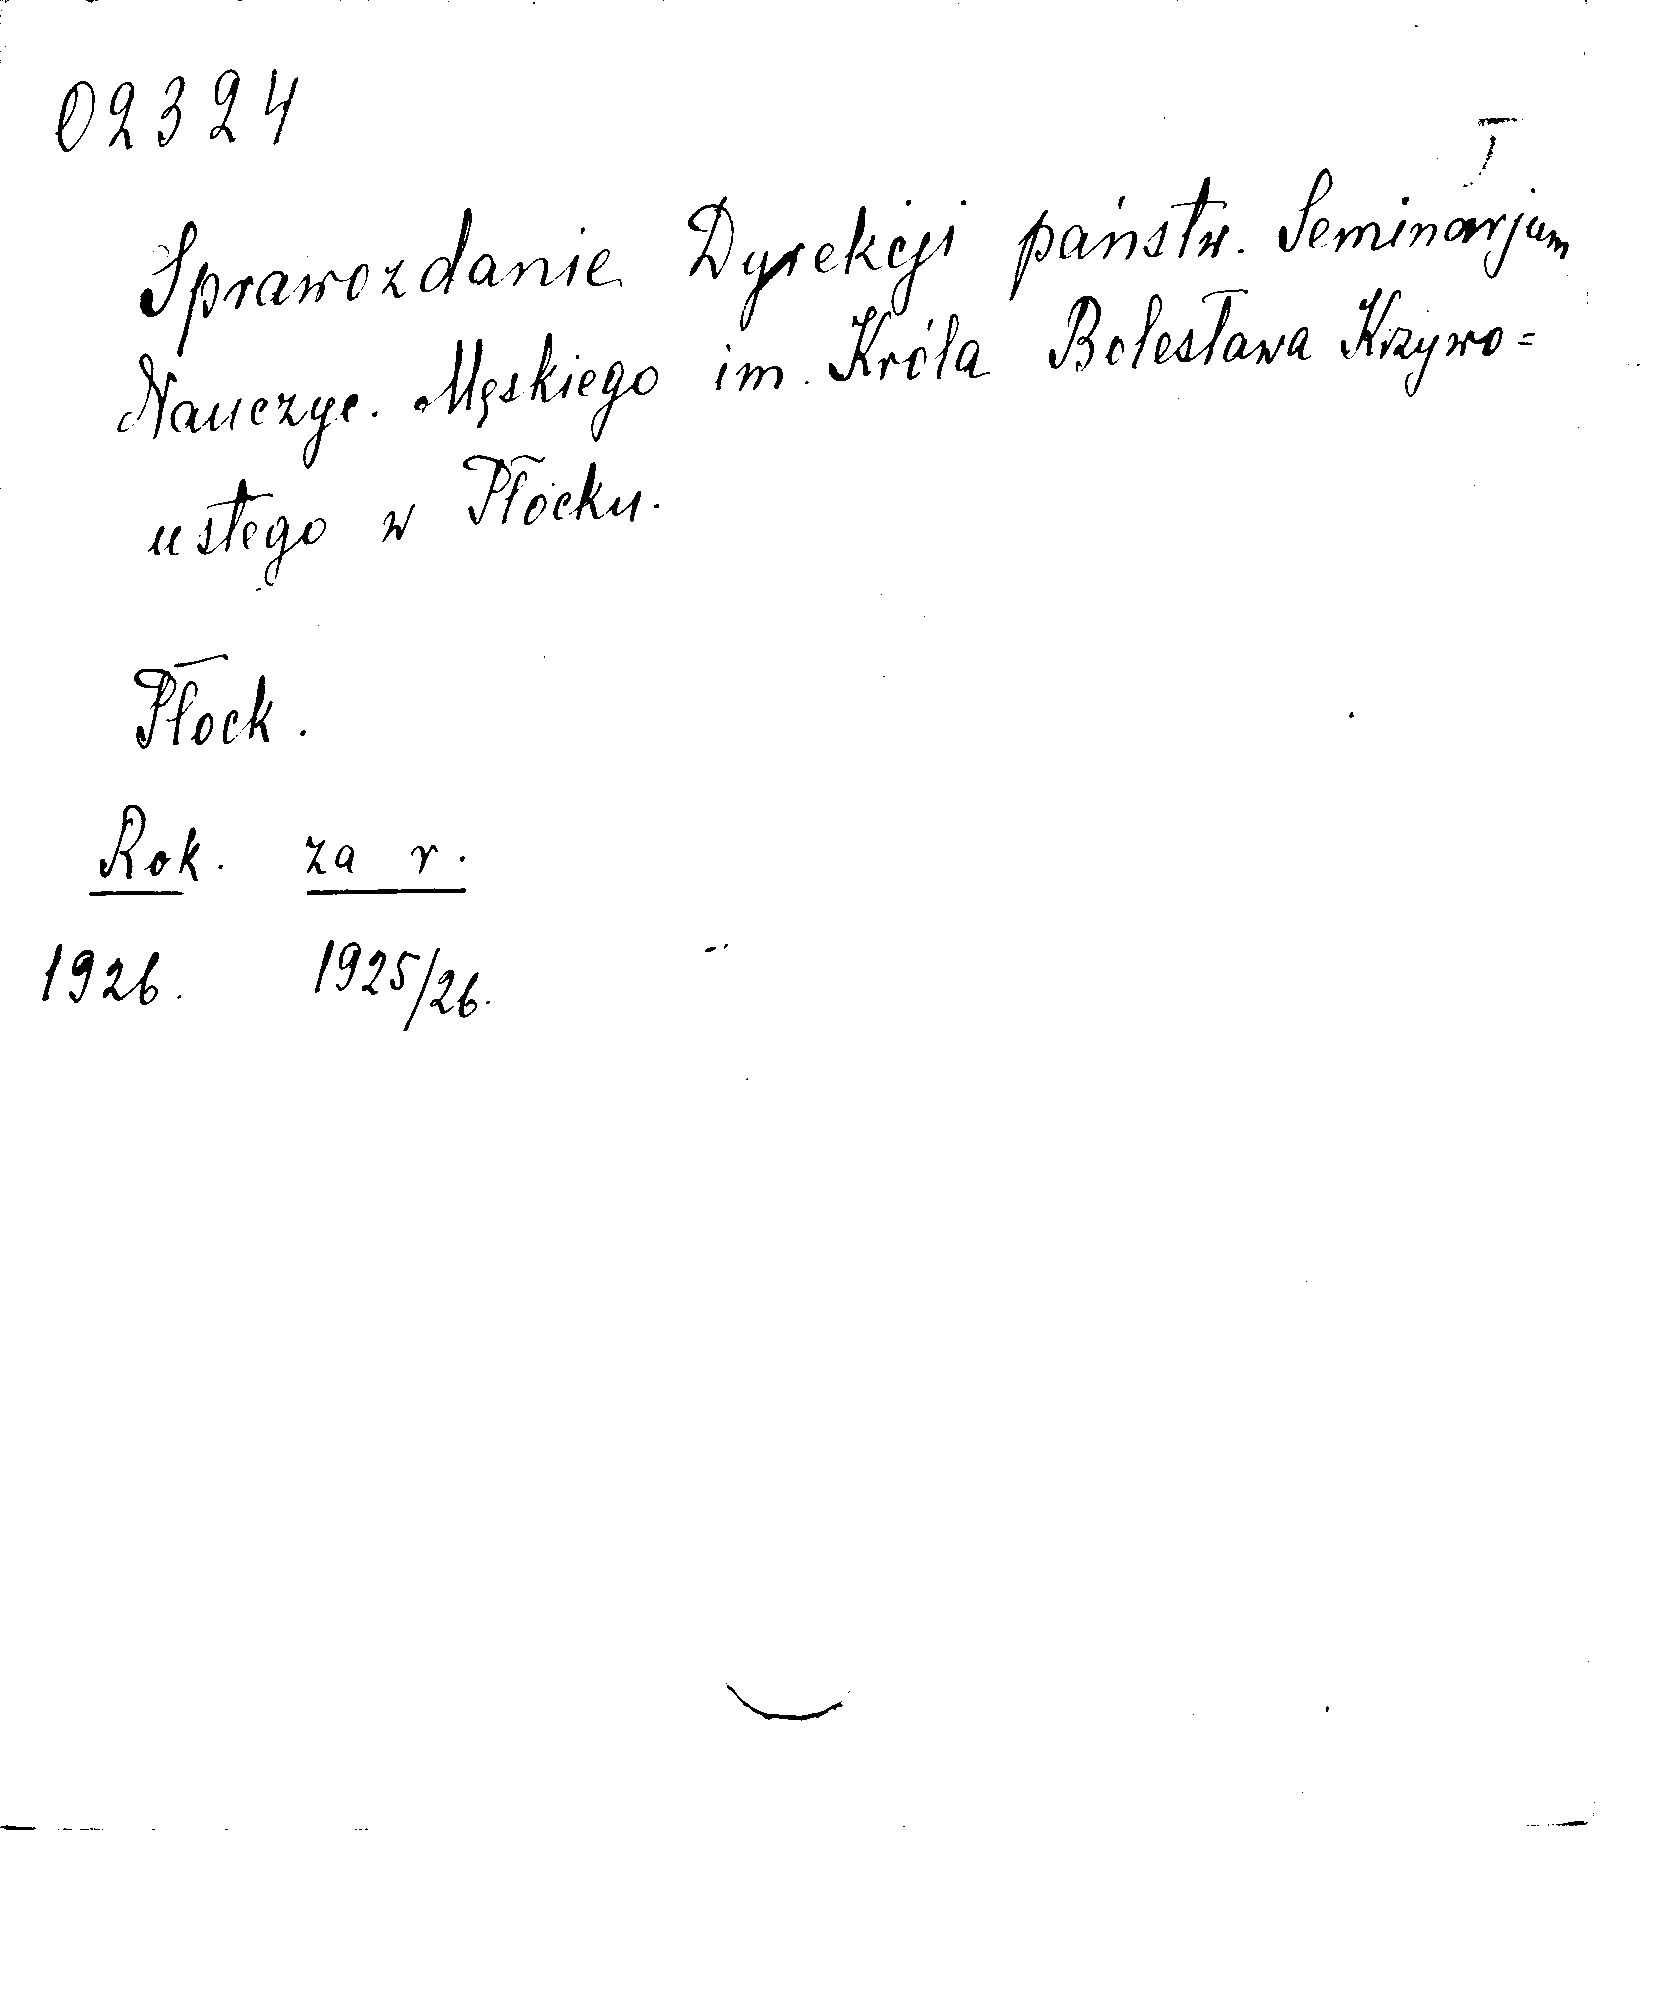 02324
I
Sprawozdanie Dyrekcji państw. Seminarjum
Nauczyc. Męskiego im. Króla Bolesława Krzywo=
ustego w Płocku.
Płock.
Rok. za r.
1926. 1925/26.